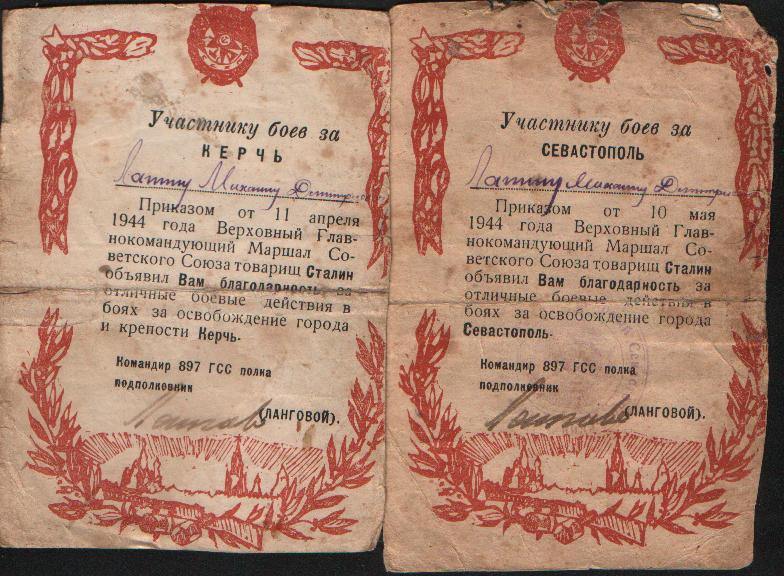 Участнику боев за
КЕРЧЬ
Лапину Михаилу
Приказом от 11 апреля
1944 года Верховный Глав-
нокомандующий Маршал Со-
ветского Союза товарищ Сталин
объявил Вам благодарность за
отличные боевые действия в
боях за освобождение города
и крепости Керчь.
Командир 897 ГСС полка
подполковник
(ЛАНГОВОЙ).
Участнику боев за
СЕВАСТОПОЛЬ
Лапину Михаилу
Приказом от 10 мая
1944 года Верховный Глав-
нокомандующий Маршал Со-
ветского Союза товарищ Сталин
объявил Вам благодарность за
отличные боевые действия в
боях за освобождение города
Севастополь.
Командир 897 ГСС полка
подполковник
(ЛАНГОВОЙ).